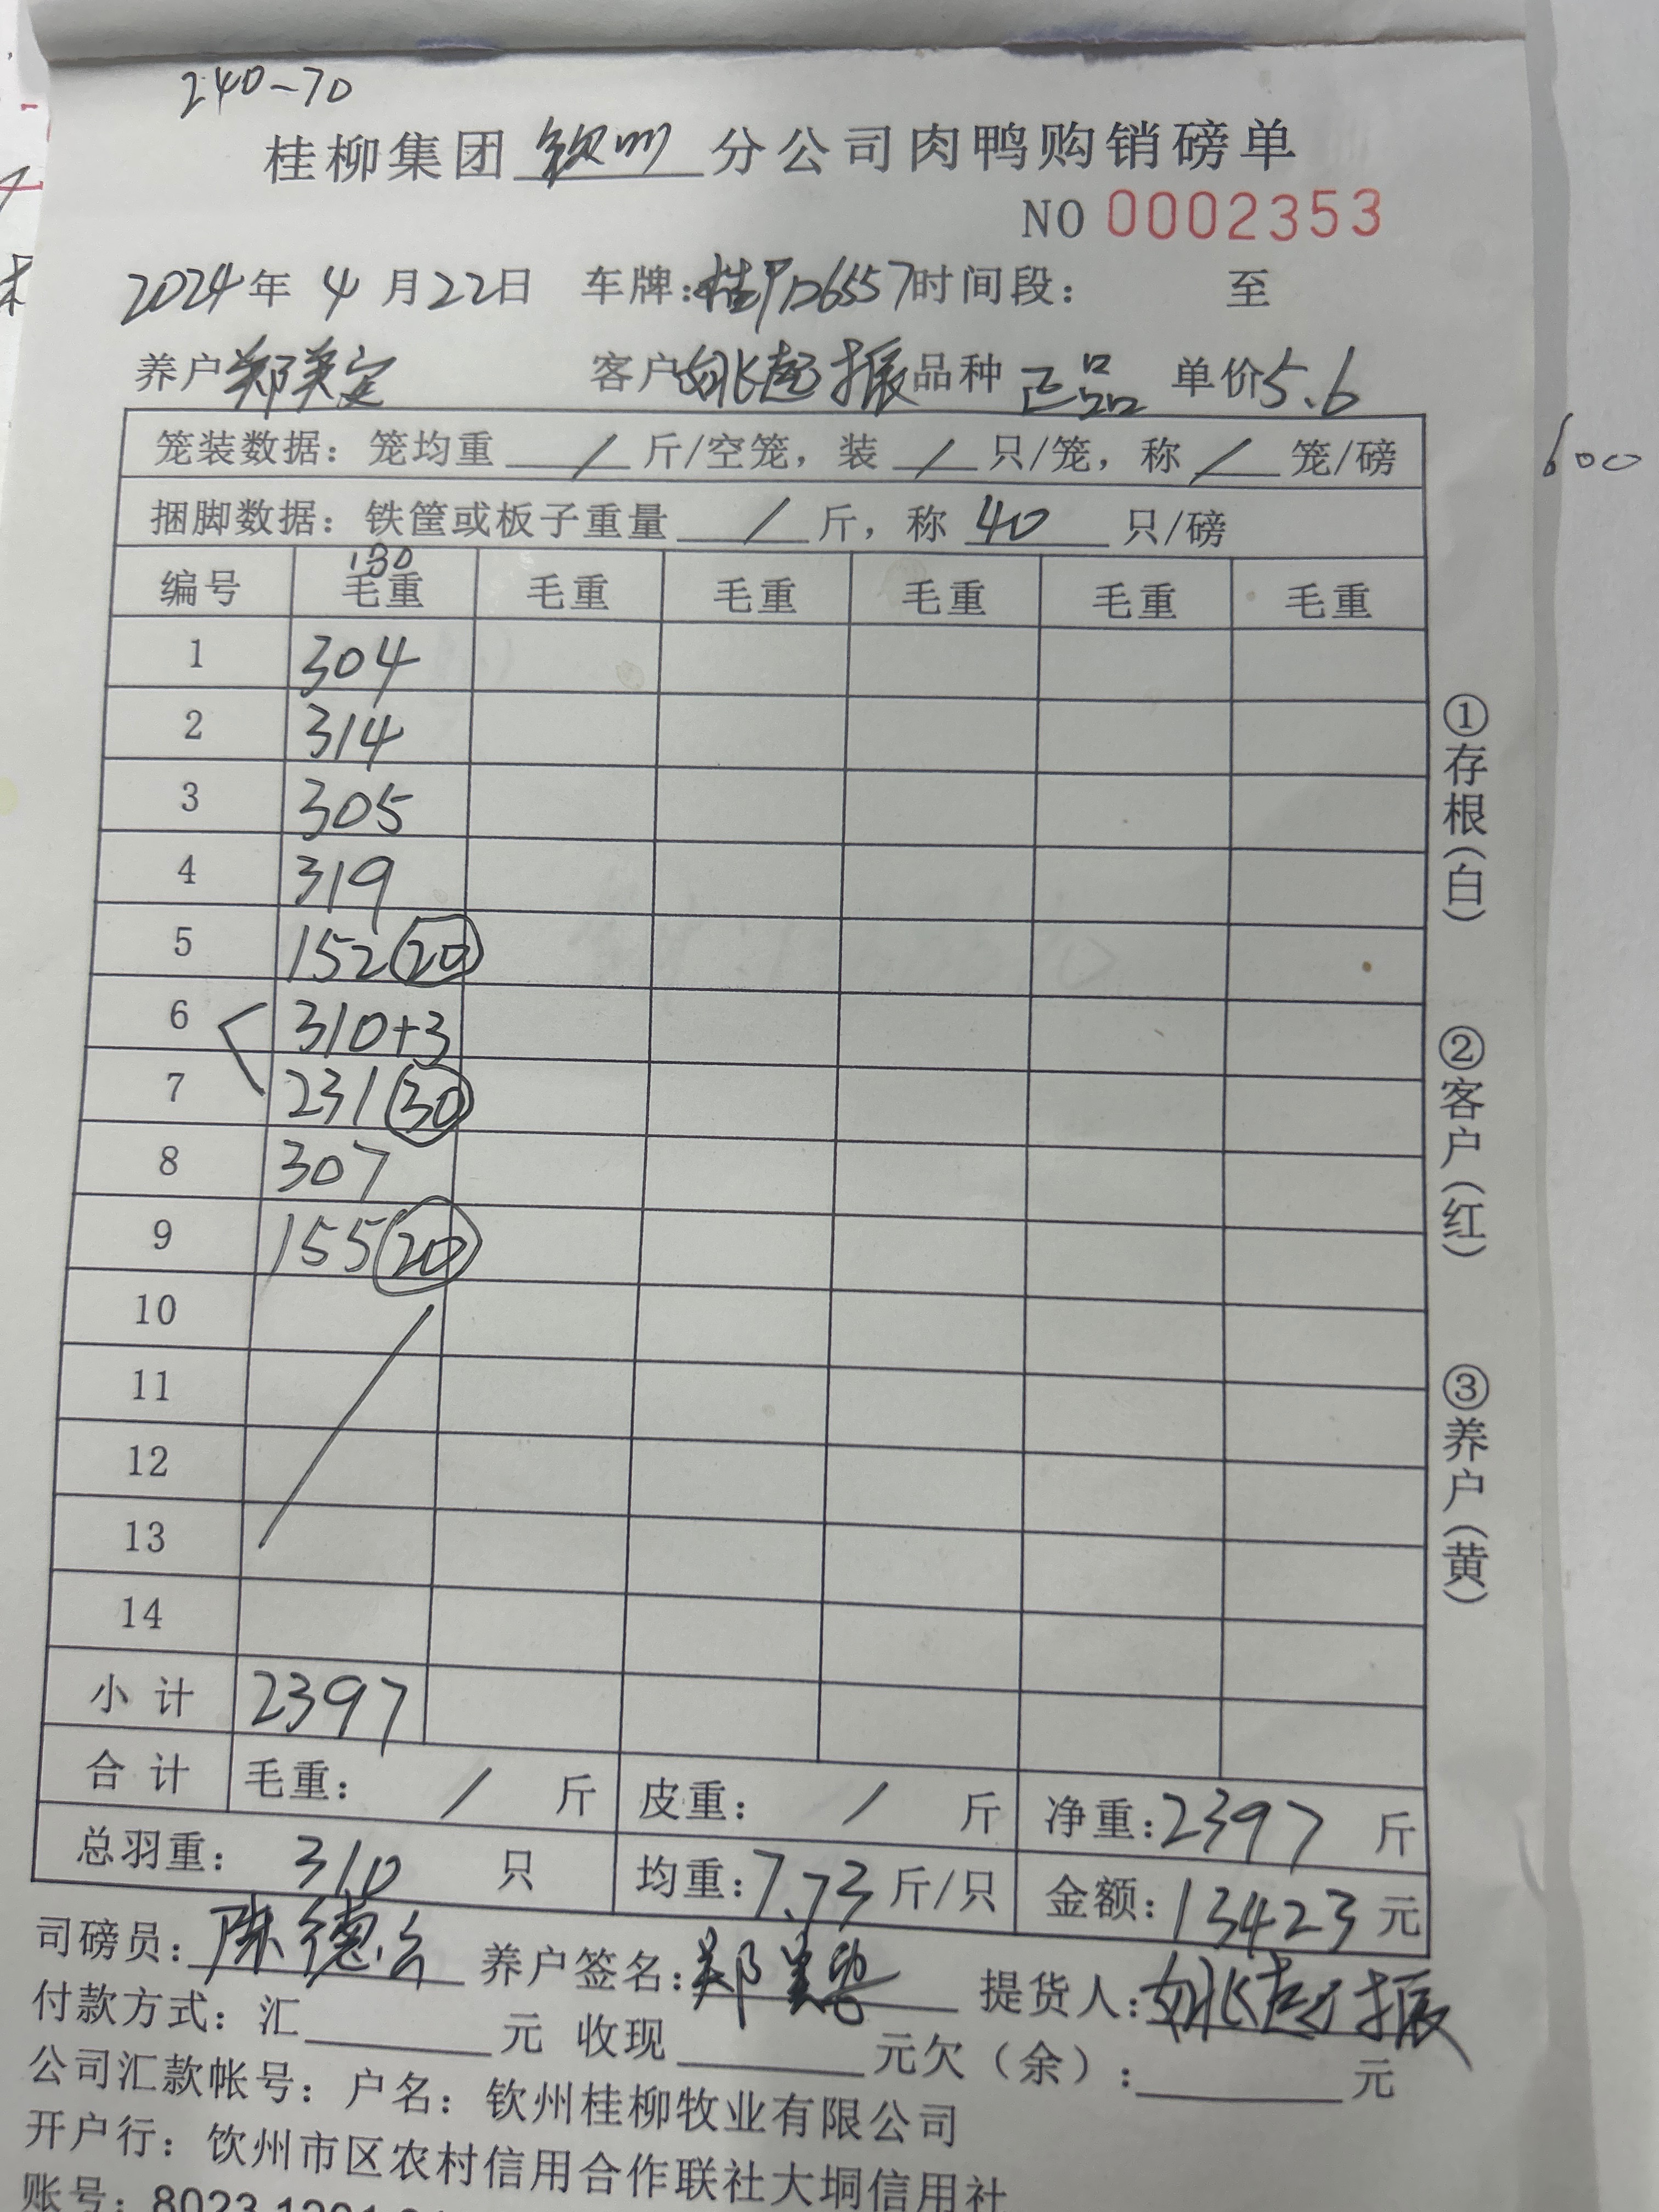 240-70
桂柳集团钦州分公司肉鸭购销磅单
NO 0002353
2024年 4月22日 车牌:桂PD6557时间段: 至
养户 郑英定 客户 姚起振 品种 正品 单价5.6
600
笼装数据: 笼均重 / 斤/空笼, 装 / 只/笼, 称 / 笼/磅
捆脚数据: 铁筐或板子重量 / 斤, 称 40 只/磅
130
编号 毛重 毛重 毛重 毛重 毛重 毛重
1 304
2 314
3 305
4 319
5 152 20
6 310+3
7 231 30
8 307
9 155 20
10
11
12
13
14
小计 2397
合计 毛重: / 斤 皮重: / 斤 净重:2397 斤
总羽重: 310 只 均重:7.73斤/只 金额:13423元
①存根(白)
②客户(红)
③养户(黄)
司磅员: 陈德 养户签名:郑 提货人:姚起振
付款方式: 汇 元 收现 元欠(余): 元
公司汇款帐号: 户名: 钦州桂柳牧业有限公司
开户行: 钦州市区农村信用合作联社大垌信用社
账号: 8023